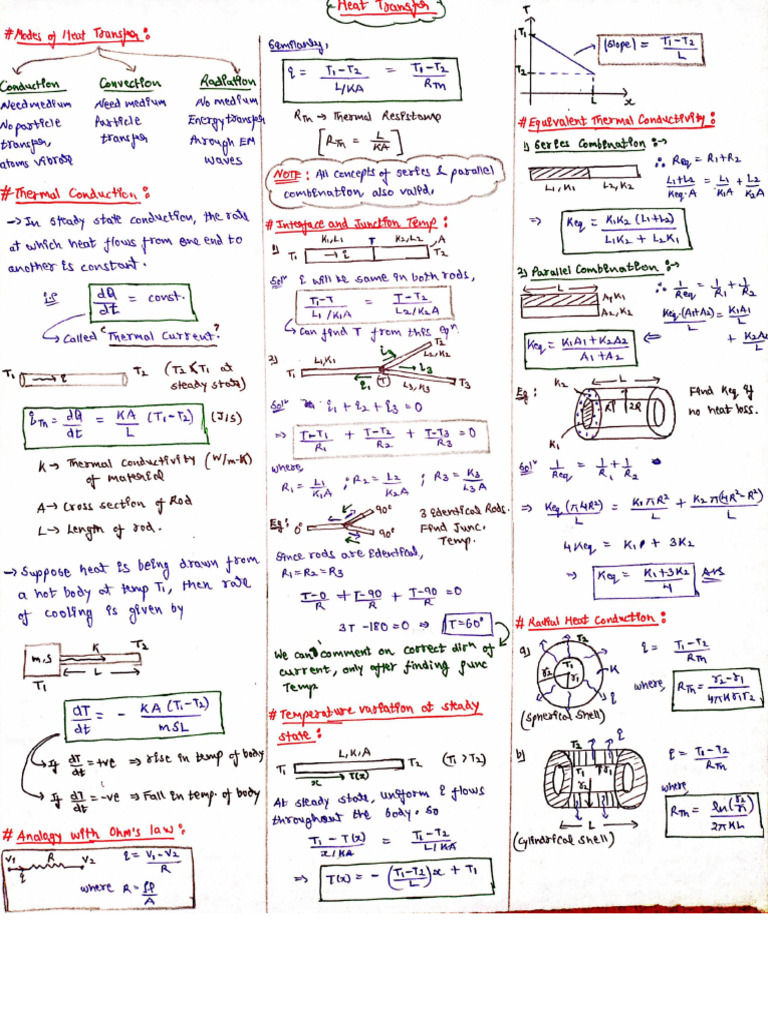 Heat Transfer
# Modes of Heat Transfer :
Conduction Convection Radiation
Need medium Need medium No medium
No particle Particle Energy transfer
transfer, transfer through EM
atoms vibrate waves
# Thermal Conduction :
→ In steady state conduction, the rate
at which heat flows from one end to
another is constant.
i.e dQ/dt = const.
→ Called "Thermal Current"
T1 → i T2 (T2 < T1 at
steady state)
iTh = dQ/dt = KA/L (T1-T2) (J/s)
K → Thermal conductivity (W/m-K)
of material
A → Cross section of Rod
L → Length of rod.
→ Suppose heat is being drawn from
a hot body at temp T1, then rate
of cooling is given by
K T2
m,s ← L →
T1
dT/dt = - KA (T1-T2)/msL
→ If dT/dt = +ve ⇒ rise in temp of body
→ If dT/dt = -ve ⇒ Fall in temp. of body
# Analogy with Ohm's law :
V1 R V2 i = V1-V2/R
i
where R = ρl/A
Similarly,
i = T1-T2/L/KA = T1-T2/RTh
RTh → Thermal Resistance
[RTh = L/KA]
NOTE : All concepts of series & parallel
combination also valid.
# Interface and Junction Temp :
1) K1,L1 T K2,L2 A
T1 → i T2
Sol^n i will be same in both rods,
T1-T/L1/K1A = T-T2/L2/K2A
→ Can find T from this eq^n.
2) L1,K1 i2 T2
L2,K2
T1 i1 (T) i3
L3,K3 T3
Sol^n i1 + i2 + i3 = 0
⇒ T-T1/R1 + T-T2/R2 + T-T3/R3 = 0
where,
R1 = L1/K1A ; R2 = L2/K2A ; R3 = K3/L3A
Eg: 0° 90° 90° 3 Identical Rods.
Find Junc.
Temp.
Since rods are identical,
R1 = R2 = R3
T-0/R + T-90/R + T-90/R = 0
3T - 180 = 0 ⇒ T = 60°
We can comment on correct dir^n of
current, only after finding junc
Temp
# Temperature variation at steady
state :
L,K,A
T1 T2 (T1 > T2)
x T(x)
At steady state, uniform i flows
throughout the body. So
T1 - T(x)/x/KA = T1-T2/L/KA
⇒ T(x) = - (T1-T2/L)x + T1
T
T1
|Slope| = T1-T2/L
T2
L x
# Equivalent Thermal Conductivity :
1) Series Combination :→
L1,K1 L2,K2
∴ Req = R1+R2
L1+L2/Keq.A = L1/K1A + L2/K2A
⇒ Keq = K1K2 (L1+L2)/L1K2 + L2K1
2) Parallel Combination :→
← L →
A1,K1
A2,K2
∴ 1/Req = 1/R1 + 1/R2
Keq.(A1+A2)/L = K1A1/L
+ K2A2/L
Keq = K1A1+K2A2/A1+A2 ⇐
Eg: K2 ← L →
R 2R
K1
Find Keq if
no heat loss.
Sol^n 1/Req = 1/R1 + 1/R2
⇒ Keq (π4R²)/L = K1πR²/L + K2π(4R²-R²)/L
4Keq = K1 + 3K2
⇒ Keq = K1+3K2/4 Ans
# Radial Heat Conduction :
a) T2
T1
r2 r1 K
i
(spherical shell)
i = T1-T2/RTh
where, RTh = r2-r1/4πKr1r2
b) T2 i i
T1 r1
r2
← L →
(cylindrical shell)
i = T1-T2/RTh
where
RTh = ln(r2/r1)/2πKL